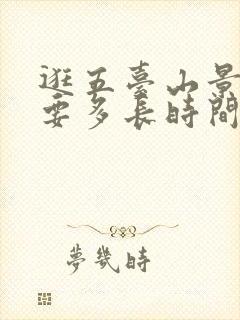 逛五臺山景
要多長時間
夢幾時